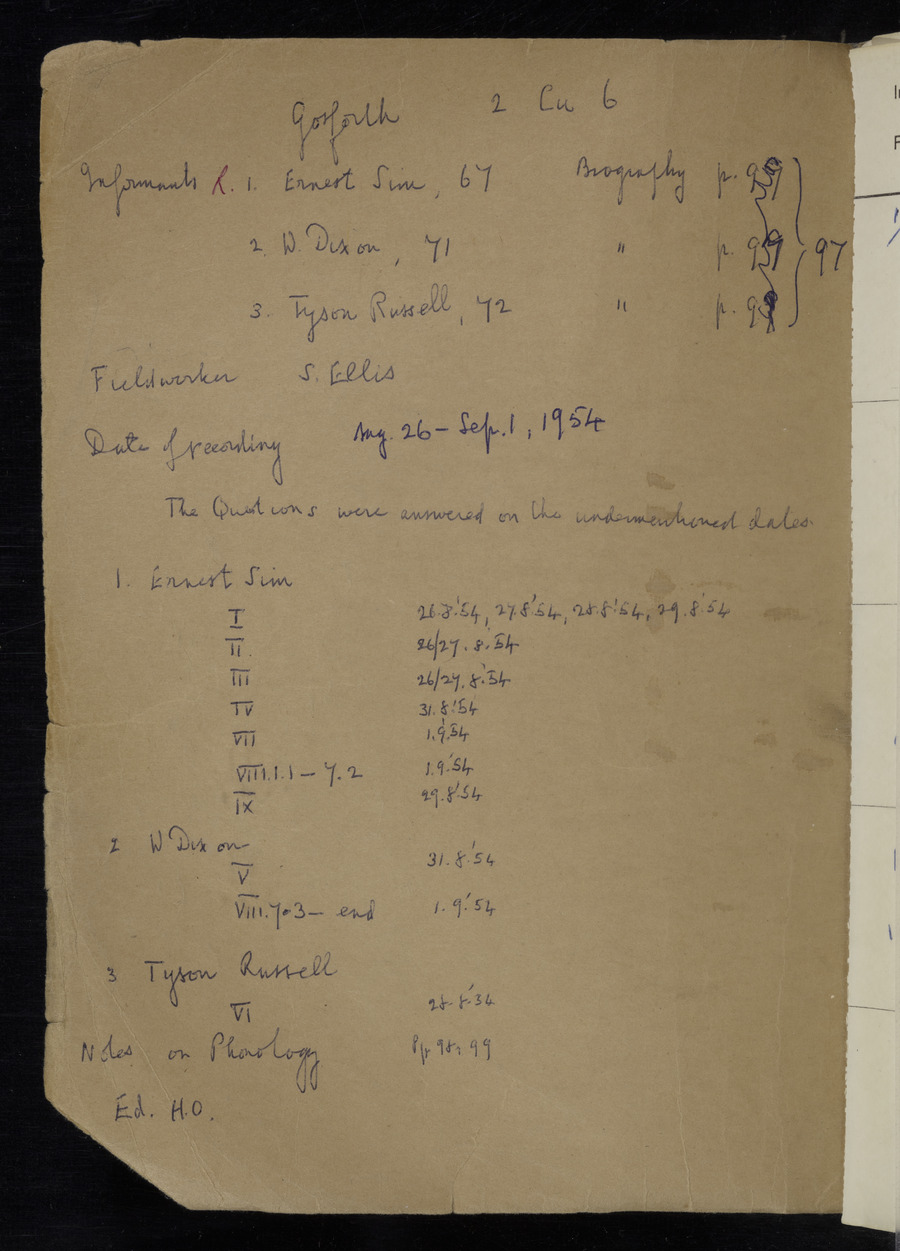 Gosforth 2 Cu 6
Informants R. 1. Ernest Sim, 67 Biography p.
2. W. Dixon, 71 " p. 97
3. Tyson Russell, 72 " p.
Fieldworker S. Ellis
Date of recording Aug. 26 – Sep. 1, 1954
The Questions were answered on the undermentioned dates.
1. Ernest Sim
I 26.8.'54, 27.8.'54, 28.8.'54, 29.8.'54
II. 26/27.8.'54
III 26/27.8.'54
IV 31.8.'54
VII 1.9.'54
VIII.1.1 – 7.2 1.9.'54
IX 29.8.'54
2 W Dixon
V 31.8.'54
VIII.7.3 – end 1.9.'54
3 Tyson Russell
VI 28.8.'54
Notes on Phonology Pp. 98, 99
Ed. H.O.